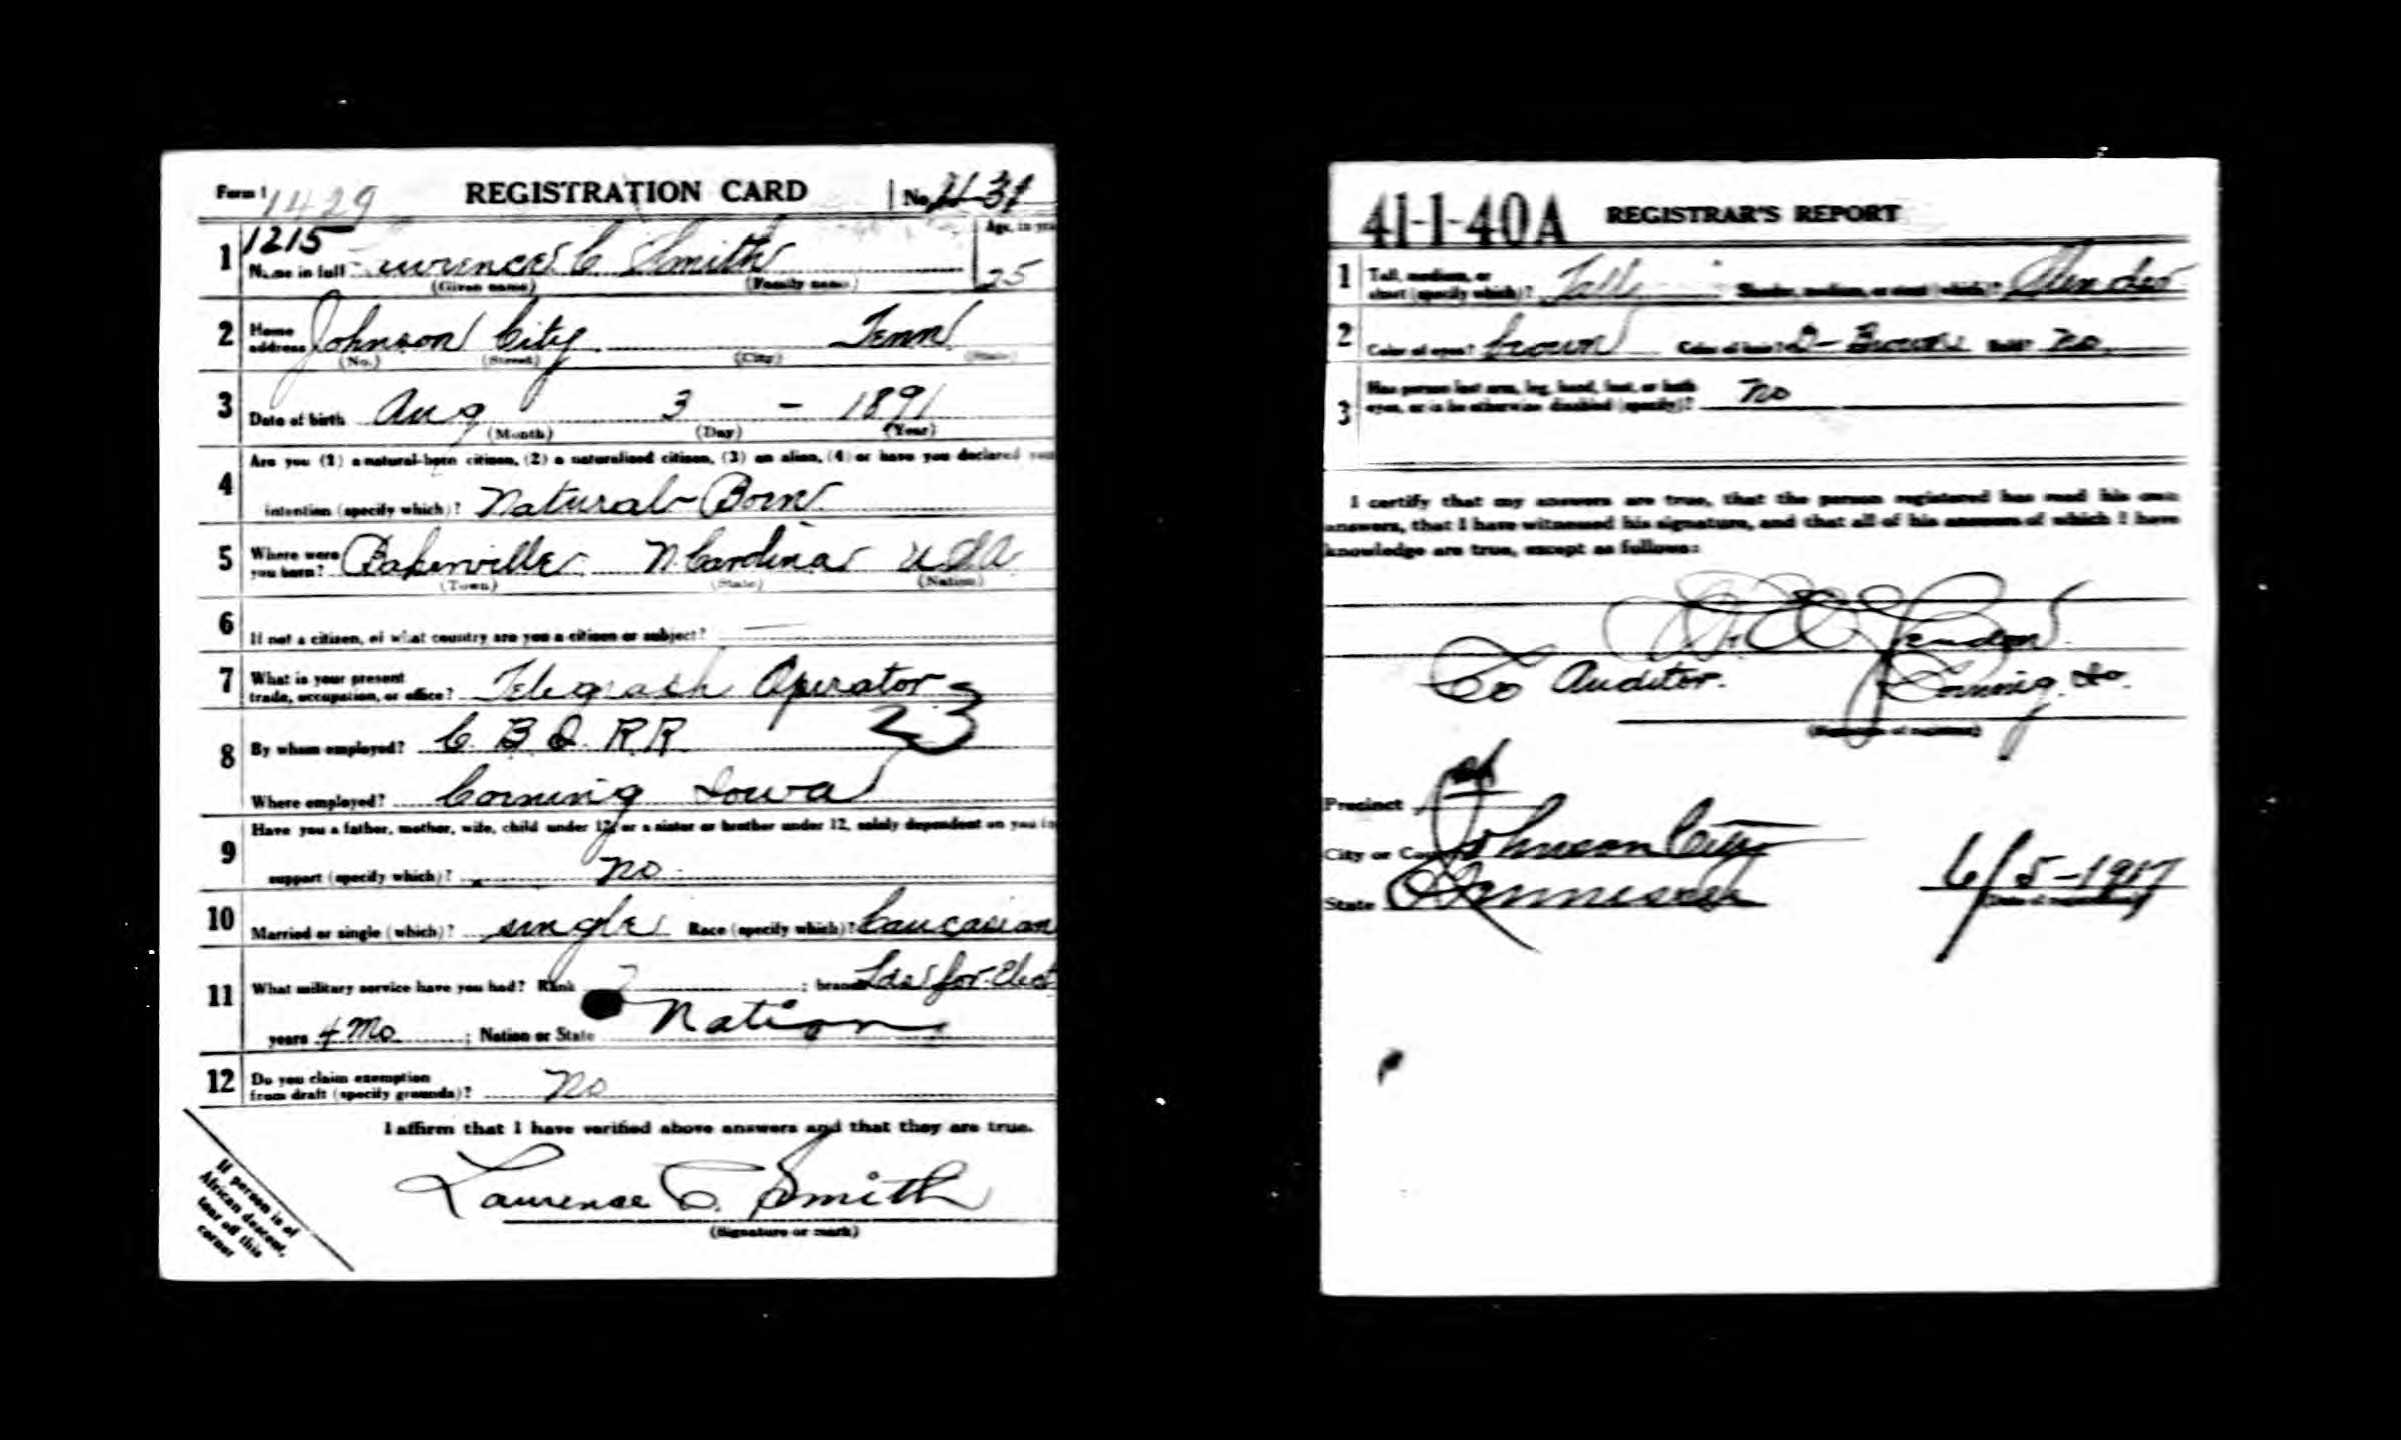 Form 1 1429 REGISTRATION CARD No. 
1215
1 Name in full Lawrence C Smith Age, in yrs 25
(Given name) (Family name)
2 Home address Johnson City Tenn
(No.) (Street) (City) (State)
3 Date of birth Aug 3 - 1891
(Month) (Day) (Year)
4 Are you (1) a natural-born citizen, (2) a naturalized citizen, (3) an alien, (4) or have you declared your
intention (specify which)? Natural-Born
5 Where were you born? Bakersville N Carolina USA
(Town) (State) (Nation)
6 If not a citizen, of what country are you a citizen or subject?
7 What is your present
trade, occupation, or office? Telegraph Operator
23
8 By whom employed? C. B. Q. R.R.
Where employed? Corning Iowa
9 Have you a father, mother, wife, child under 12, or a sister or brother under 12, solely dependent on you for
support (specify which)? no
10 Married or single (which)? single Race (specify which)? Caucasian
11 What military service have you had? Rank ; branch for Elect
years 4 Mo ; Nation or State Nation
12 Do you claim exemption
from draft (specify grounds)? no
I affirm that I have verified above answers and that they are true.
Lawrence C. Smith
(Signature or mark)
If person is of
African descent,
tear off this
corner
41-1-40A REGISTRAR'S REPORT
1 Tall, medium, or
short (specify which)? Tall Slender, medium, or stout (which)? Slender
2 Color of eyes? brown Color of hair? D-Brown Bald? no
3 Has person lost arm, leg, hand, foot, or both
eyes, or is he otherwise disabled (specify)? no
I certify that my answers are true, that the person registered has read his own
answers, that I have witnessed his signature, and that all of his answers of which I have
knowledge are true, except as follows:
Co Auditor. Corning, Io.
(Signature of registrar)
Precinct
City or County Johnson City
State Tennessee 6/5-1917
(Date of registration)